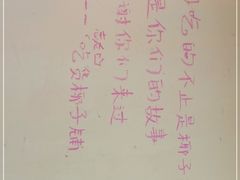 吃的不止是椰子
是你们的故事
谢你们来过
——“吃货椰子铺